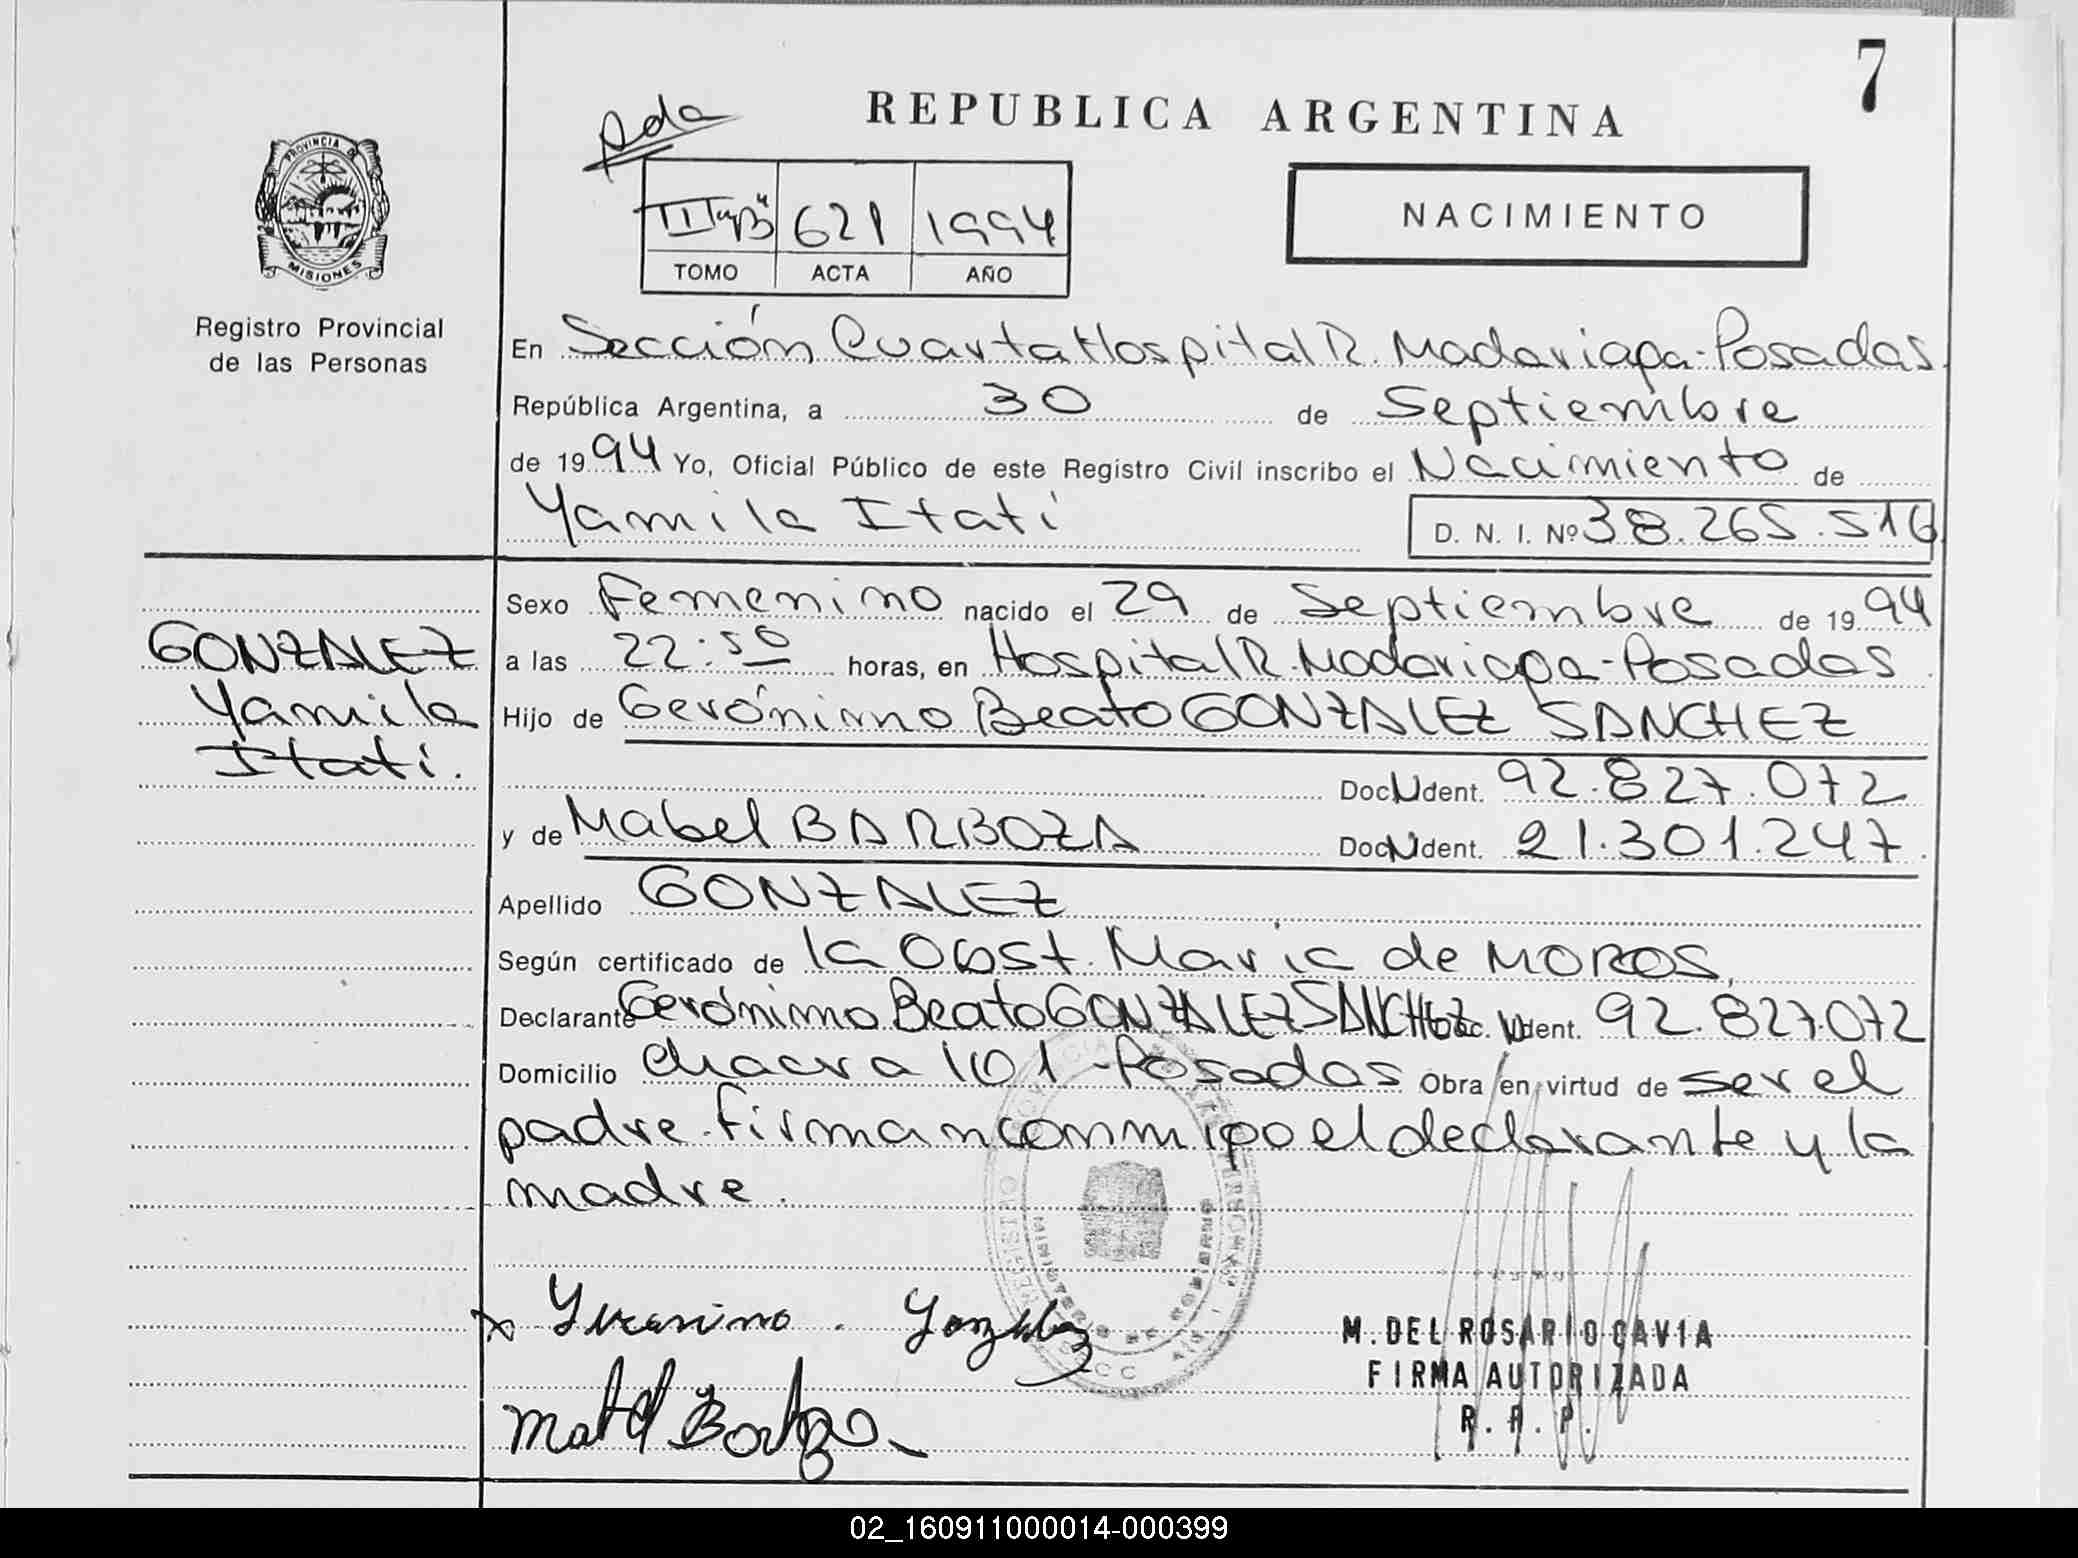 7
REPUBLICA ARGENTINA
Ada
PROVINCIA D
MISIONES
Registro Provincial
de las Personas
III "B" 621 1994
TOMO ACTA AÑO
NACIMIENTO
En Sección Cuarta Hospital R. Madariaga-Posadas.
República Argentina, a 30 de Septiembre
de 1994 Yo, Oficial Público de este Registro Civil inscribo el Nacimiento de
Yamila Itatí D. N. I. Nº 38.265.516
GONZALEZ
Yamila
Itatí.
Sexo Femenino nacido el 29 de Septiembre de 1994
a las 22:50 horas, en Hospital R. Madariaga-Posadas
Hijo de Gerónimo Beato GONZALEZ SANCHEZ
Doc N Ident. 92.827.072
y de Mabel BARBOZA Doc N Ident. 21.301.247.
Apellido GONZALEZ
Según certificado de la Obst. Maria de MOROS,
Declarante Gerónimo Beato GONZALEZ SANCHEZ Doc. N Ident. 92.827.072
Domicilio chacra 101-Posadas Obra en virtud de ser el
padre. Firman conmigo el declarante y la
madre.
MINISTERIO DE GOBIERNO
Gerónimo. Gonzalez
Mabel Barboza
M. DEL ROSARIO CAVIA
FIRMA AUTORIZADA
R. P. P.
02_160911000014-000399